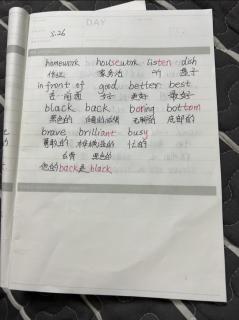 DAY
5.26
homework housework listen dish
作业 家务活 听 盘子
in front of good better best
在...前面 好 更好 最好
black back boring bottom
黑色的 后背 无聊的 底部的
brave brilliant busy
勇敢的 忙的
后背 黑色的
他的back是black